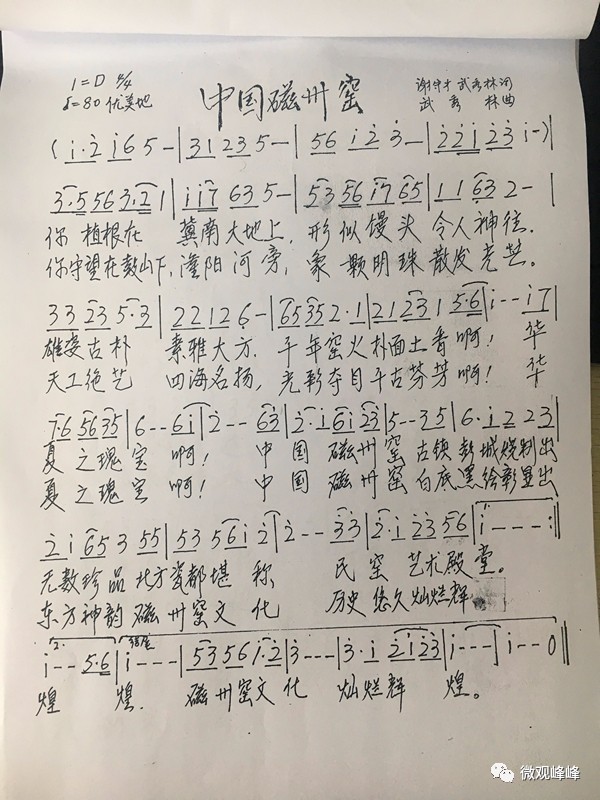 1=D 4/4
♩=80 优美地
中国磁州窑
谢钟才 武秀林词
武秀林曲
(i·2 i65-|3123 5-|56 i23-|22i23 i-)|
3·5563·21|ii7 635-|5356i765|11632-|
你植根在 冀南大地上,形似馒头 令人神往.
你守望在鼓山下,滏阳河旁,象颗明珠 散发光芒。
33235·3|22126-|65352·1|21231 5·6|i--i7|
雄姿古朴 素雅大方.千年窑火扑面土香啊! 华
天工绝艺 四海名扬,光彩夺目千古芬芳啊! 华
7·65635|6--6i|2--63|2·i6i23|5--35|6·i223|
夏之瑰宝 啊! 中国 磁州窑 古镇彭城烧制出
夏之瑰宝 啊! 中国 磁州窑 白底黑绘彰显出
2i65355|5356i2|2--33|2·i2356|i---:||
无数珍品北方瓷都堪称 民窑 艺术殿堂。
东方神韵磁州窑文化 历史悠久灿烂辉
2. 结尾
i--5·6|i---|53561·2|3---|3·i2i23|i---|i--0||
煌 煌. 磁州窑文化 灿烂辉 煌。
微观峰峰